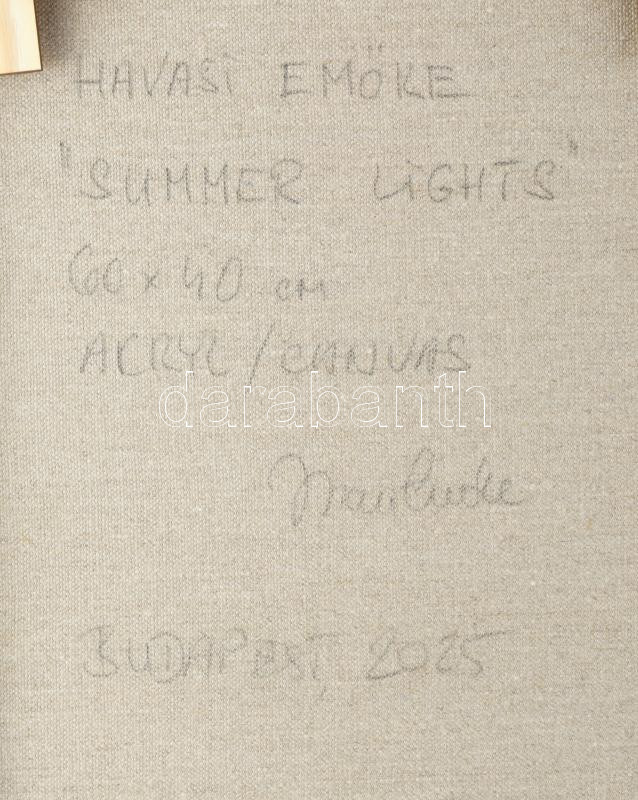 HAVASI EMŐKE
"SUMMER LIGHTS"
60 x 40 cm
ACRYL / CANVAS
darabanth
BUDAPEST, 2025